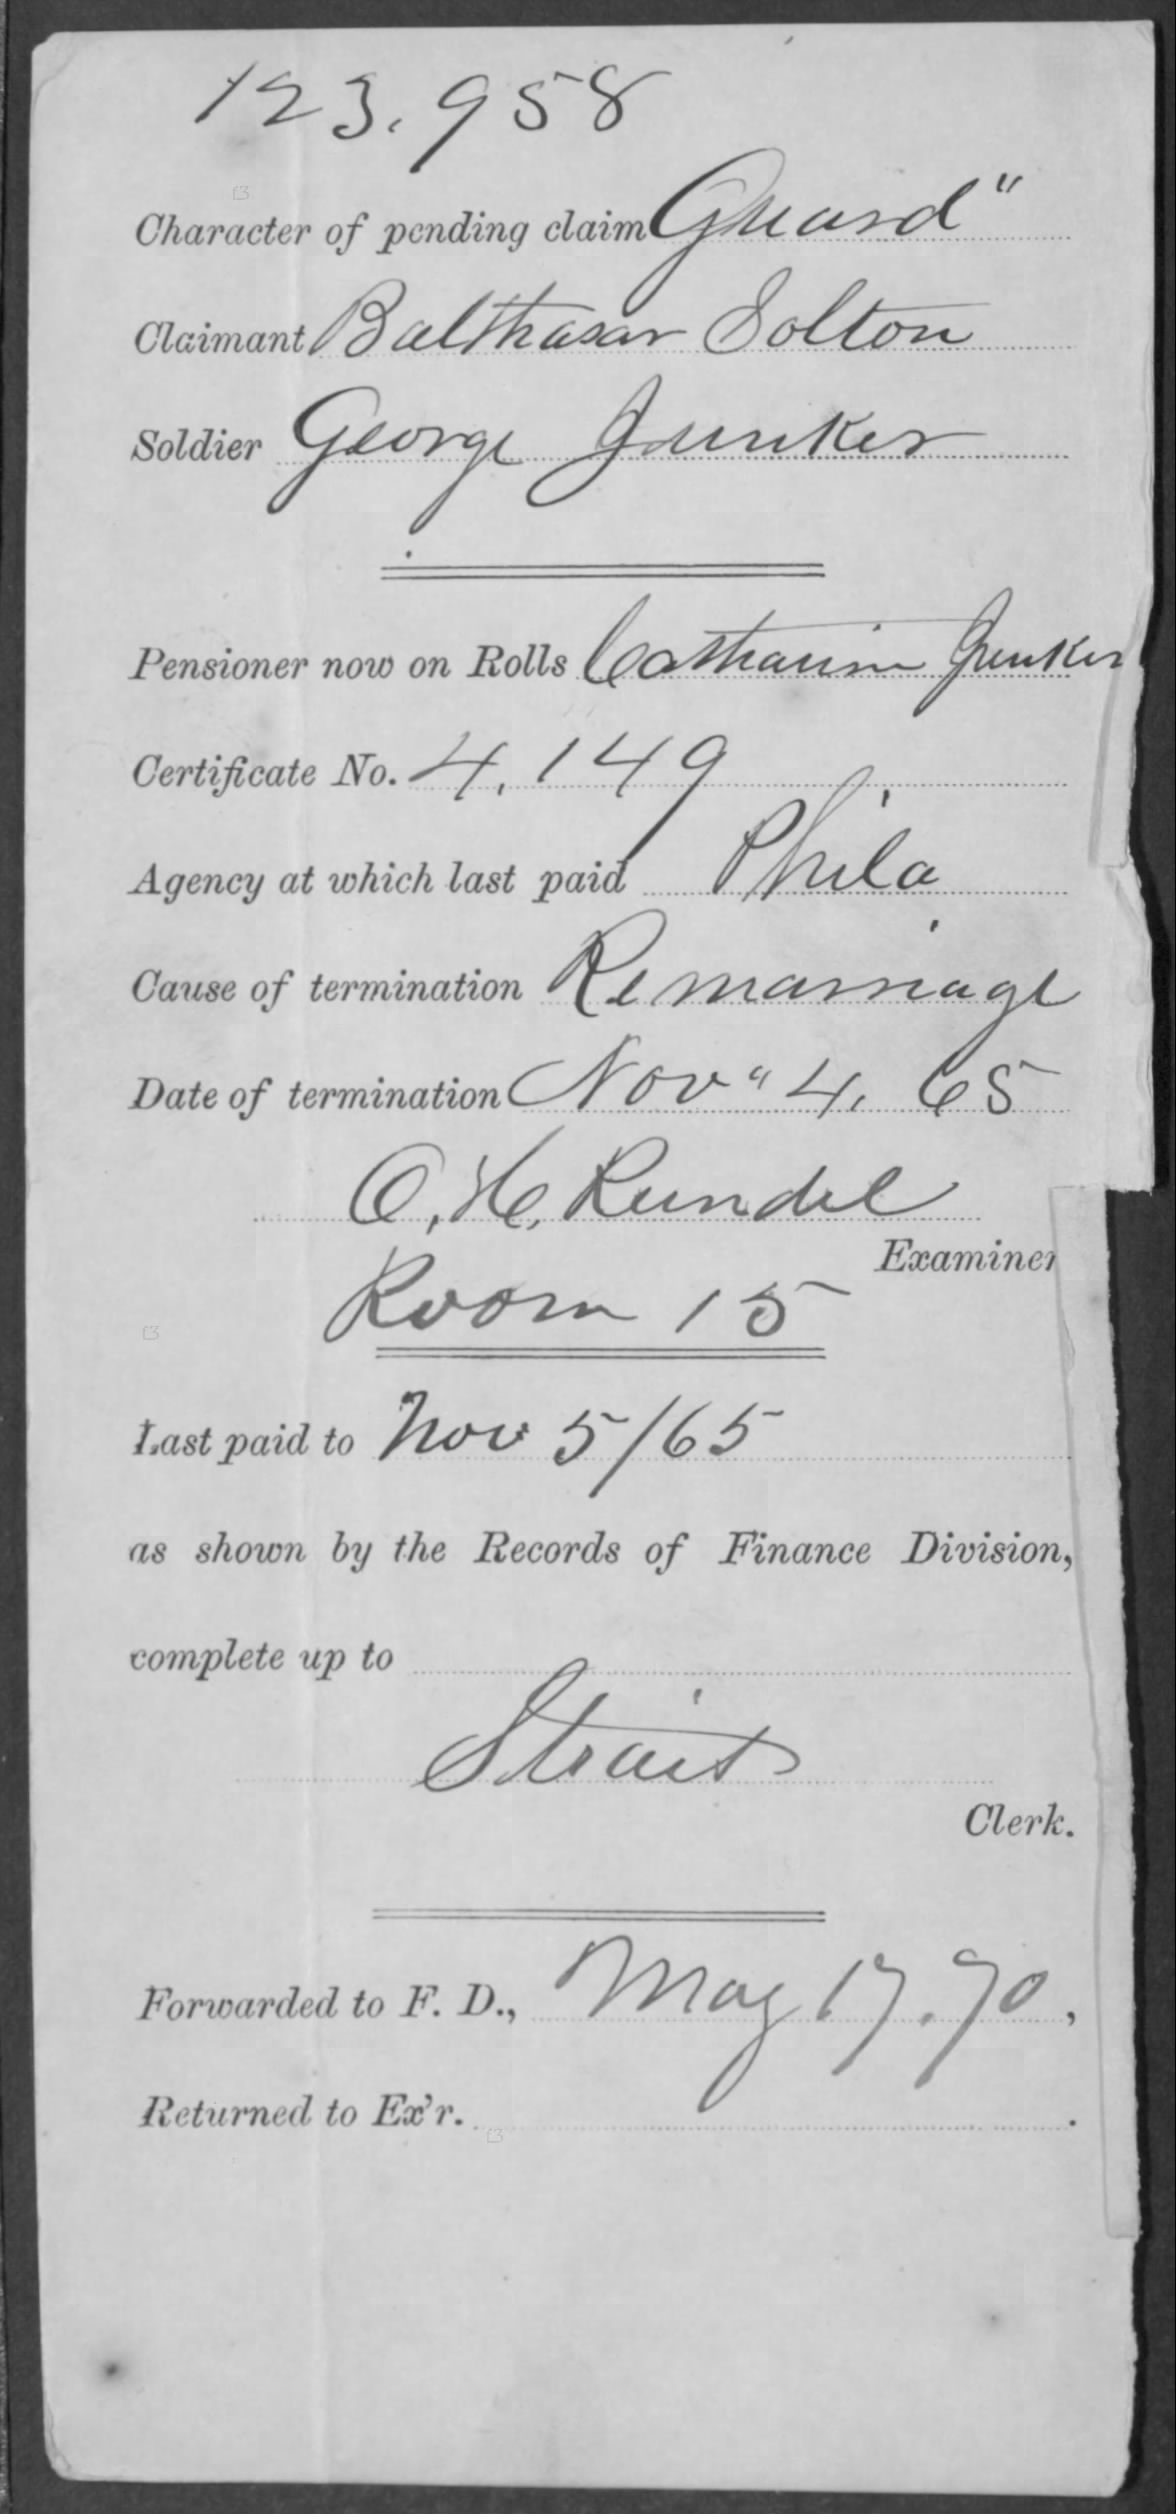 123.958
Character of pending claim Guard"
Claimant Balthasar Solton
Soldier George Junker
Pensioner now on Rolls Catharine Junker
Certificate No. 4,149
Agency at which last paid Phila
Cause of termination Remarriage
Date of termination Nov" 4, 65
O. H. Rundel
Examiner
Room 15
Last paid to Nov 5/65
as shown by the Records of Finance Division,
complete up to
Strait
Clerk.
Forwarded to F. D., May 17. 90,
Returned to Ex'r. .